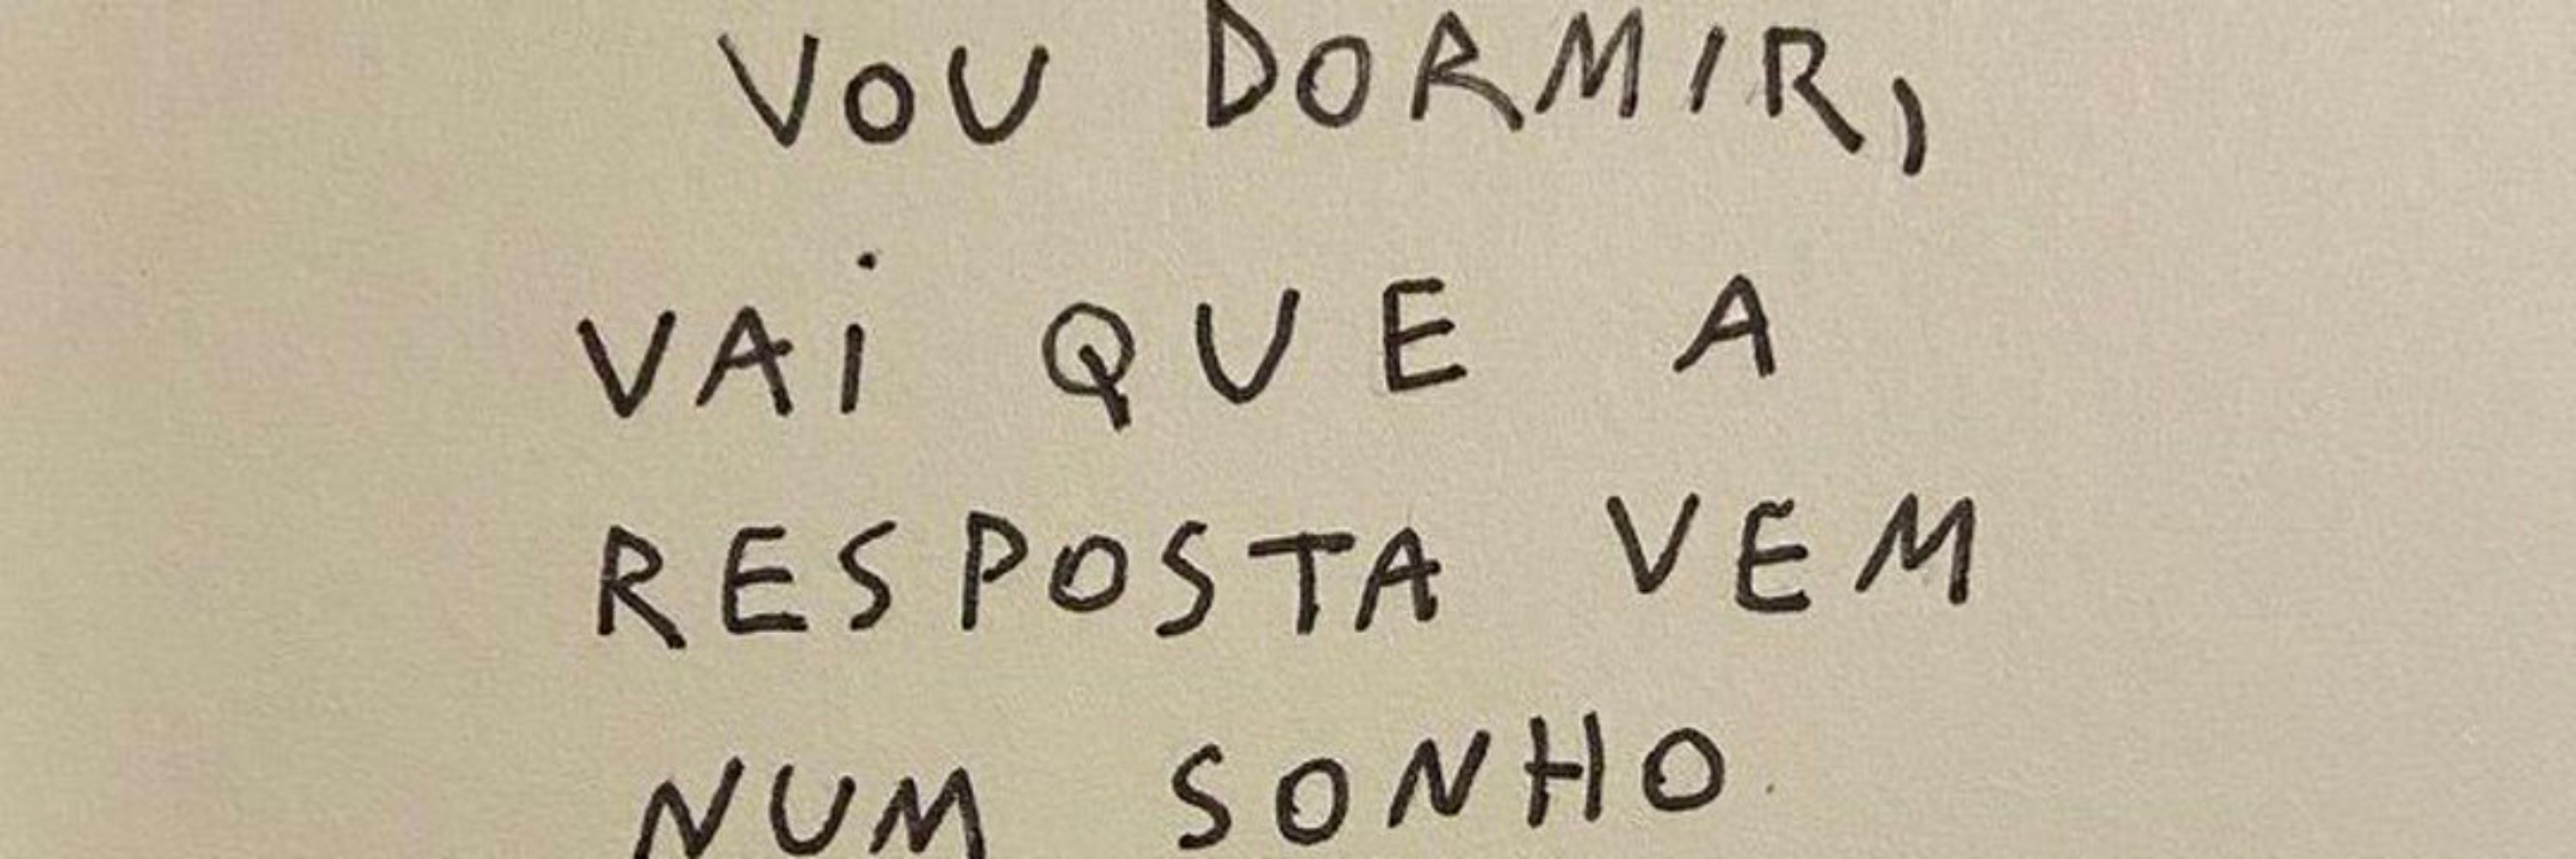 VOU DORMIR,
VAI QUE A
RESPOSTA VEM
NUM SONHO.